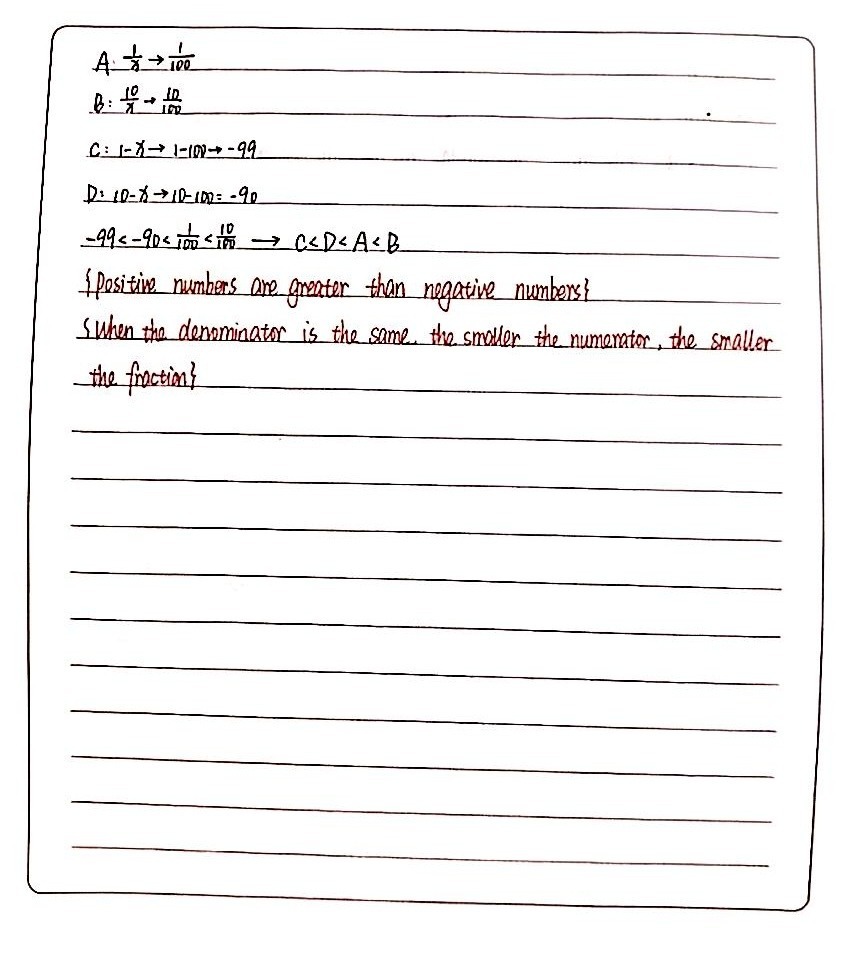 A: 1/x → 1/100
B: 10/x → 10/100
C: 1-x → 1-100 → -99
D: 10-x → 10-100 = -90
-99 < -90 < 1/100 < 10/100 → C<D<A<B
{Positive numbers are greater than negative numbers}
{When the denominator is the same, the smaller the numerator, the smaller
the fraction}